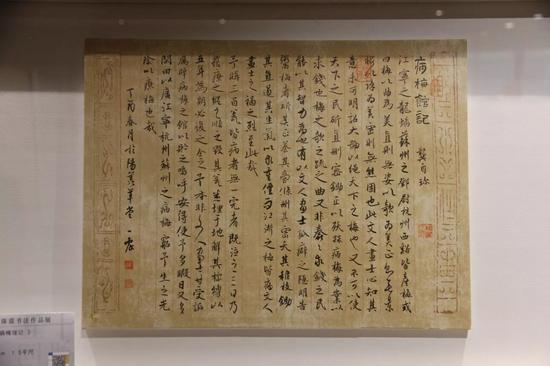 病梅館記
龔自珍
江寧之龍蟠蘇州之鄧尉杭州西谿皆產梅或
曰梅以曲為美直則無姿以欹為美正則無景
以疏為美密則無態固也此文人畫士心知其
意未可明詔大號以繩天下之梅也又不可以使
天下之民斫直刪密鋤正以殀梅病梅為業以
求錢也梅之欹之疏之曲又非蠢蠢求錢之民
能以其智力為也有以文人畫士孤癖之隱明告
鬻梅者斫其正養其旁條刪其密夭其稚枝鋤
其直遏其生氣以求重價而江浙之梅皆病文人
畫士之禍之烈至此哉
予購三百盆皆病者無一完者既泣之三日乃
誓療之縱之順之毀其盆悉埋于地解其棕縛以
五年為期必復之全之予本非文人畫士甘受詬
厲辟病梅之館以貯之嗚呼安得使予多暇日又多
閒田以廣江寧杭州蘇州之病梅窮予生之光
陰以療梅也哉
丁酉春月於陽羨草堂一
書法作品展